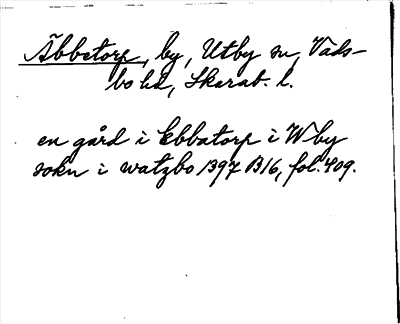 Äbbetorp, by, Utby sn, Vads-
bo hd, Skarab. l.
en gård i Ebbatorp i Wby
sokn i watzbo 1397 B16, fol. 409.